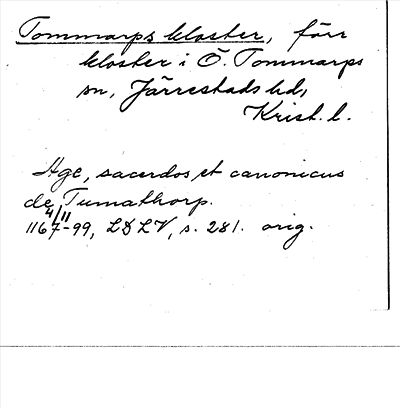 Tommarps kloster, förr
kloster i Ö. Tommarps
sn, Järrestads hd,
Krist. l.
Age, sacerdos et canonicus
de Tumathorp.
4/11
1167-99, LDLV, s. 281. orig.